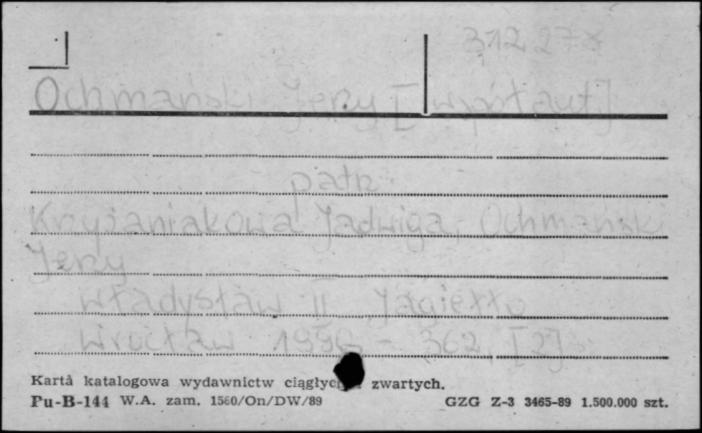 312 27x
Ochmański Jerzy [współaut.]
patrz
Krzyżaniakowa Jadwiga, Ochmański
Jerzy
Władysław II Jagiełło
Wrocław 1990 - 362, [2] s.
Karta katalogowa wydawnictw ciągłych zwartych.
Pu-B-144 W.A. zam. 1560/On/DW/89
GZG Z-3 3465-89 1.500.000 szt.